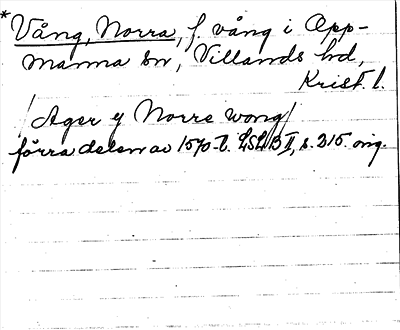 * Vång, Norra, f. vång i Opp-
manna sn, Villands hd,
Krist. l.
/Ager y Norre wong/
förra delen av 1570-t. LSLB II, s. 315. orig.